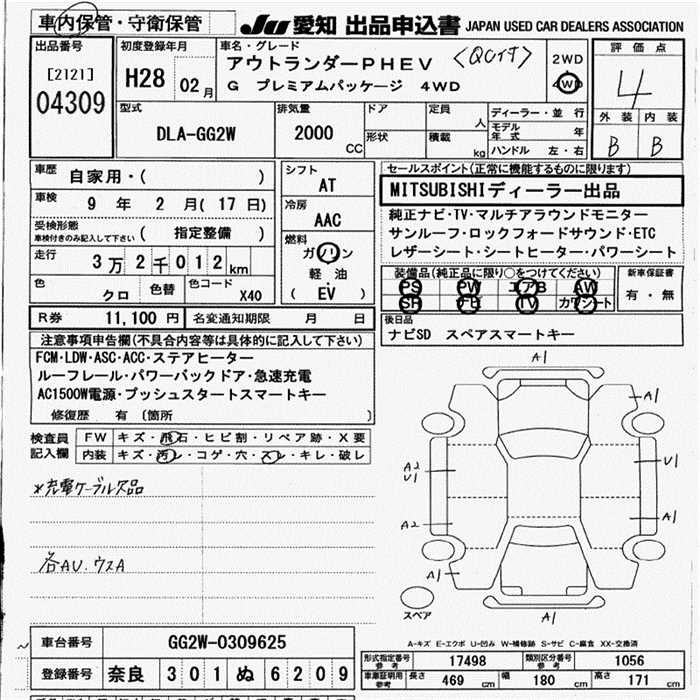 車内保管・守衛保管
JU 愛知 出品申込書 JAPAN USED CAR DEALERS ASSOCIATION
出品番号
[2121]
04309
初度登録年月
H28 02月
車名・グレード
アウトランダーPHEV
G プレミアムパッケージ 4WD
2WD
4WD
評価点
4
外装 内装
B B
型式
DLA-GG2W
排気量
2000 CC
ドア
形状
定員 人
積載 kg
ディーラー・並行
モデル年式 年
ハンドル 左・右
車歴
自家用・( )
車検
9年 2月(17日)
受検形態
車検付きのみ記入して下さい ( 指定整備 )
走行
3万2千012km
色 クロ
色替
色コード X40
シフト
AT
冷房
AAC
燃料
ガソリン
軽油
( EV )
セールスポイント(正常に機能するものに限ります)
MITSUBISHIディーラー出品
純正ナビ・TV・マルチアラウンドモニター
サンルーフ・ロックフォードサウンド・ETC
レザーシート・シートヒーター・パワーシート
装備品(純正品に限り○をつけてください)
PS PW エアB AW
SR ナビ TV カワシート
新車保証書
有・無
R券 11,100円
名変通知期限 月 日
後日品
ナビSD スペアスマートキー
注意事項申告欄(不具合内容等は具体的に記入して下さい)
FCM・LDW・ASC・ACC・ステアヒーター
ルーフレール・パワーバックドア・急速充電
AC1500W電源・プッシュスタートスマートキー
修復歴 有 〔箇所 〕
検査員記入欄
FW キズ・飛石・ヒビ割・リペア跡・X要
内装 キズ・汚レ・コゲ・穴・スレ・キレ・破レ
*充電ケーブル欠品
各AU.ウスA
A1
A1
A2
U1
U1
A2
A1
A1
スペア
A1
A-キズ E-エクボ U-凹み W-補修跡 S-サビ C-腐食 XX-交換済
車台番号 GG2W-0309625
登録番号 奈良 301 ぬ 6209
形式指定番号 参考 17498
類別区分番号 参考 1056
車庫証明用 参考 長さ 469cm 幅 180cm 高さ 171cm